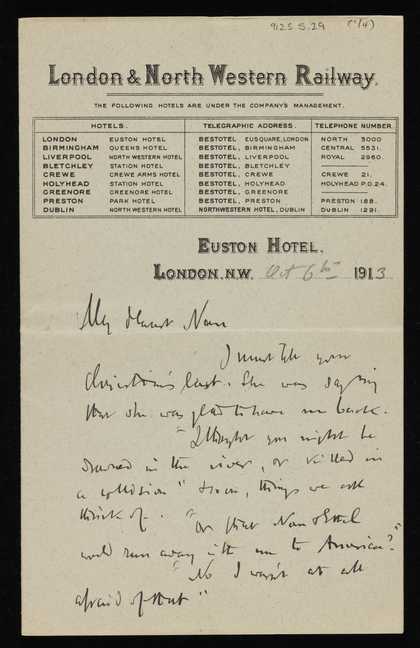 9125 S.29
London & North Western Railway.
THE FOLLOWING HOTELS ARE UNDER THE COMPANY'S MANAGEMENT.
HOTELS. TELEGRAPHIC ADDRESS. TELEPHONE NUMBER.
LONDON EUSTON HOTEL BESTOTEL, EUSQUARE, LONDON NORTH 3000
BIRMINGHAM QUEENS HOTEL BESTOTEL, BIRMINGHAM CENTRAL 5531.
LIVERPOOL NORTH WESTERN HOTEL BESTOTEL, LIVERPOOL ROYAL 2960.
BLETCHLEY STATION HOTEL BESTOTEL, BLETCHLEY
CREWE CREWE ARMS HOTEL BESTOTEL, CREWE CREWE 21.
HOLYHEAD STATION HOTEL BESTOTEL, HOLYHEAD HOLYHEAD P.O.24.
GREENORE GREENORE HOTEL BESTOTEL, GREENORE
PRESTON PARK HOTEL BESTOTEL, PRESTON PRESTON 188.
DUBLIN NORTH WESTERN HOTEL NORTHWESTERN HOTEL, DUBLIN DUBLIN 1291.
EUSTON HOTEL.
LONDON. N.W. Oct 6th 1913
My dearest Nan
I must tell you
Christina's last. She was saying
that she was glad to have me back.
"I thought you might be
drowned in the river, or killed in
a collision" , things we all
think of. "Or that Nan & Ethel
would run away with me to America?"
"No I wasn't at all
afraid of that"